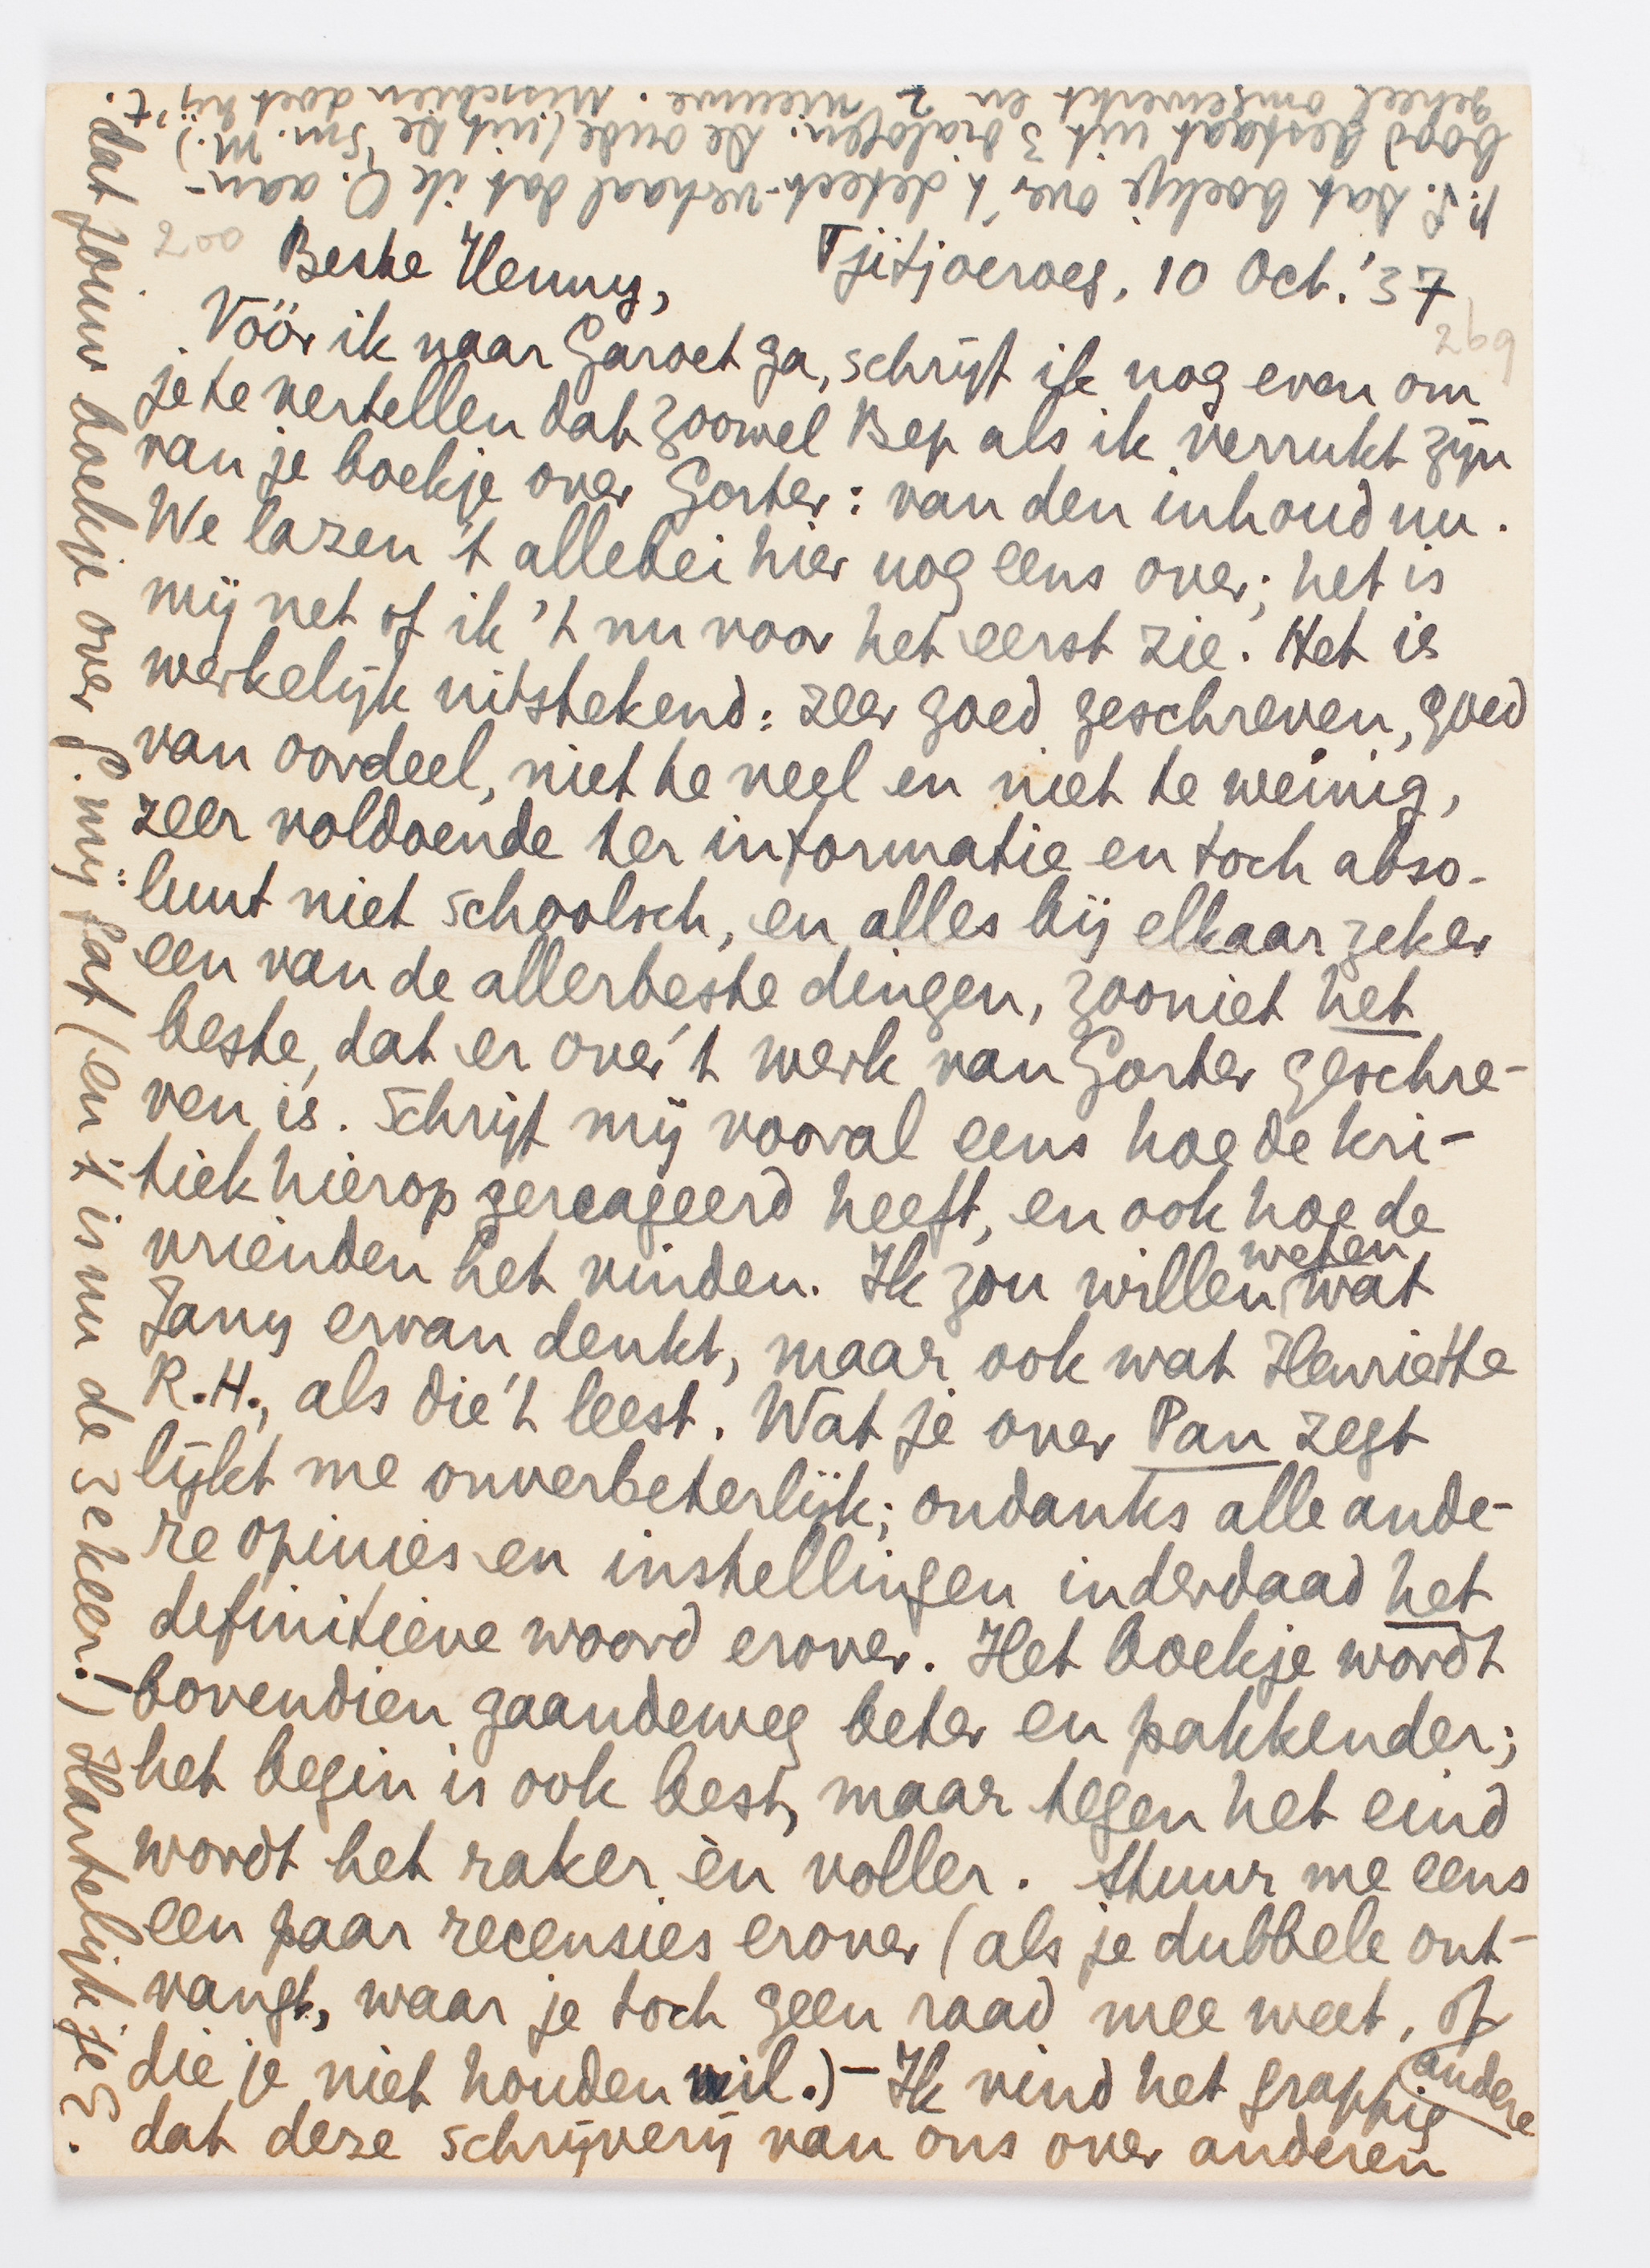 Beste Henny, Tjitjoeroeg, 10 Oct. '37
Vóór ik naar Garoet ga, schrijf ik nog even om
je te vertellen dat zoowel Bep als ik verrukt zijn
van je boekje over Gorter: van den inhoud nu.
We lazen 't allebei hier nog eens over; het is
mij net of ik 't nu voor het eerst zie. Het is
werkelijk uitstekend: zeer goed geschreven, goed
van oordeel, niet te veel en niet te weinig,
zeer voldoende ter informatie en toch abso-
luut niet schoolsch, en alles bij elkaar zeker
een van de allerbeste dingen, zooniet het
beste, dat er over 't werk van Gorter geschre-
ven is. Schrijf mij vooral eens hoe de kri-
tiek hierop gereageerd heeft, en ook hoe de
vrienden het vinden. Ik zou willen weten, wat
Jany ervan denkt, maar ook wat Henriëtte
R.H., als die 't leest. Wat je over Pan zegt
lijkt me onverbeterlijk; ondanks alle ande-
re opinies en instellingen inderdaad het
definitieve woord erover. Het boekje wordt
bovendien gaandeweg beter en pakkender;
het begin is ook best, maar tegen het eind
wordt het raker èn voller. Stuur me eens
een paar recensies erover (als je dubbele ont-
vangt, waar je toch geen raad mee weet, of andere
die je niet houden wil.) – Ik vind het grappig
dat deze schrijverij van ons over anderen
dat jouw boekje over G. mij laat (en 't is nu de 3e keer!) Hartelijk je E.
P.S. Dat boekje over 't detect.-verhaal dat ik Q. aan-
bood bestaat uit 3 dialogen. De oude (uit De Sm. M.)
geheel omgewerkt en 2 nieuwe. Misschien doet hij 't.
200
269